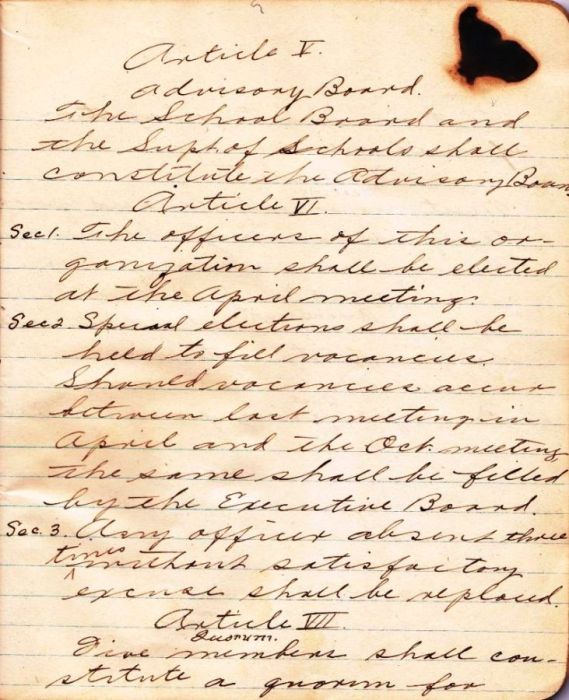 Article V.
Advisory Board.
The School Board and
the Supt of Schools shall
constitute the Advisory Board
Article VI.
Sec 1. The officers of this or-
ganization shall be elected
at the April meeting.
Sec 2. Special elections shall be
held to fill vacancies.
Should vacancies occur
between last meeting in
April and the Oct. meeting
the same shall be filled
by the Executive Board.
Sec. 3. Any officer absent three
times without satisfactory
excuse shall be replaced.
Article VII.
Quorum.
Five members shall con-
stitute a quorum for